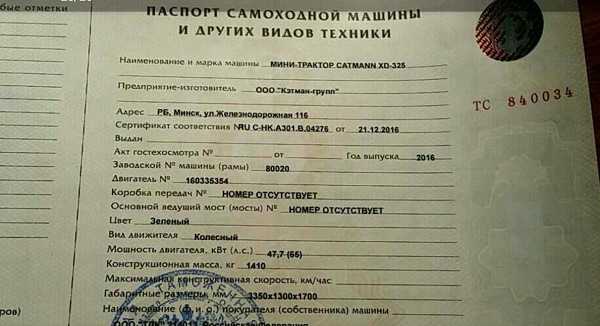 бые отметки
ПАСПОРТ САМОХОДНОЙ МАШИНЫ
И ДРУГИХ ВИДОВ ТЕХНИКИ
Наименование и марка машины МИНИ-ТРАКТОР CATMANN XD-325
Предприятие-изготовитель ООО "Кэтман-групп"
ТС 840034
Адрес РБ, Минск, ул.Железнодорожная 116
Сертификат соответствия №RU C-HK.A301.B.04276 от 21.12.2016
Выдан
Акт гостехосмотра № от Год выпуска 2016
Заводской № машины (рамы) 80020
Двигатель № 160335354
Коробка передач № НОМЕР ОТСУТСТВУЕТ
Основной ведущий мост (мосты) № НОМЕР ОТСУТСТВУЕТ
Цвет Зеленый
Вид движителя Колесный
Мощность двигателя, кВт (л.с.) 47,7 (65)
Конструкционная масса, кг 1410
Максимальная конструктивная скорость, км/час
Габаритные размеры, мм 3350х1300х1700
ров) Наименование (ф, и, о,) покупателя (собственника) машины
Российская Федерация
ТАМОЖЕНН